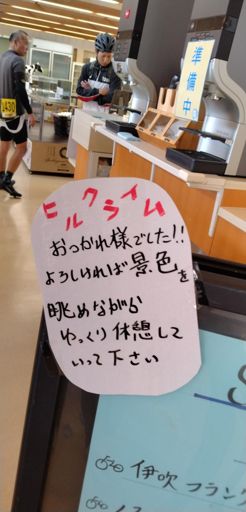 430
準備中
ヒルクライム
おつかれ様でした!!
よろしければ景色を
眺めながら
ゆっくり休憩して
いって下さい
伊吹フランク